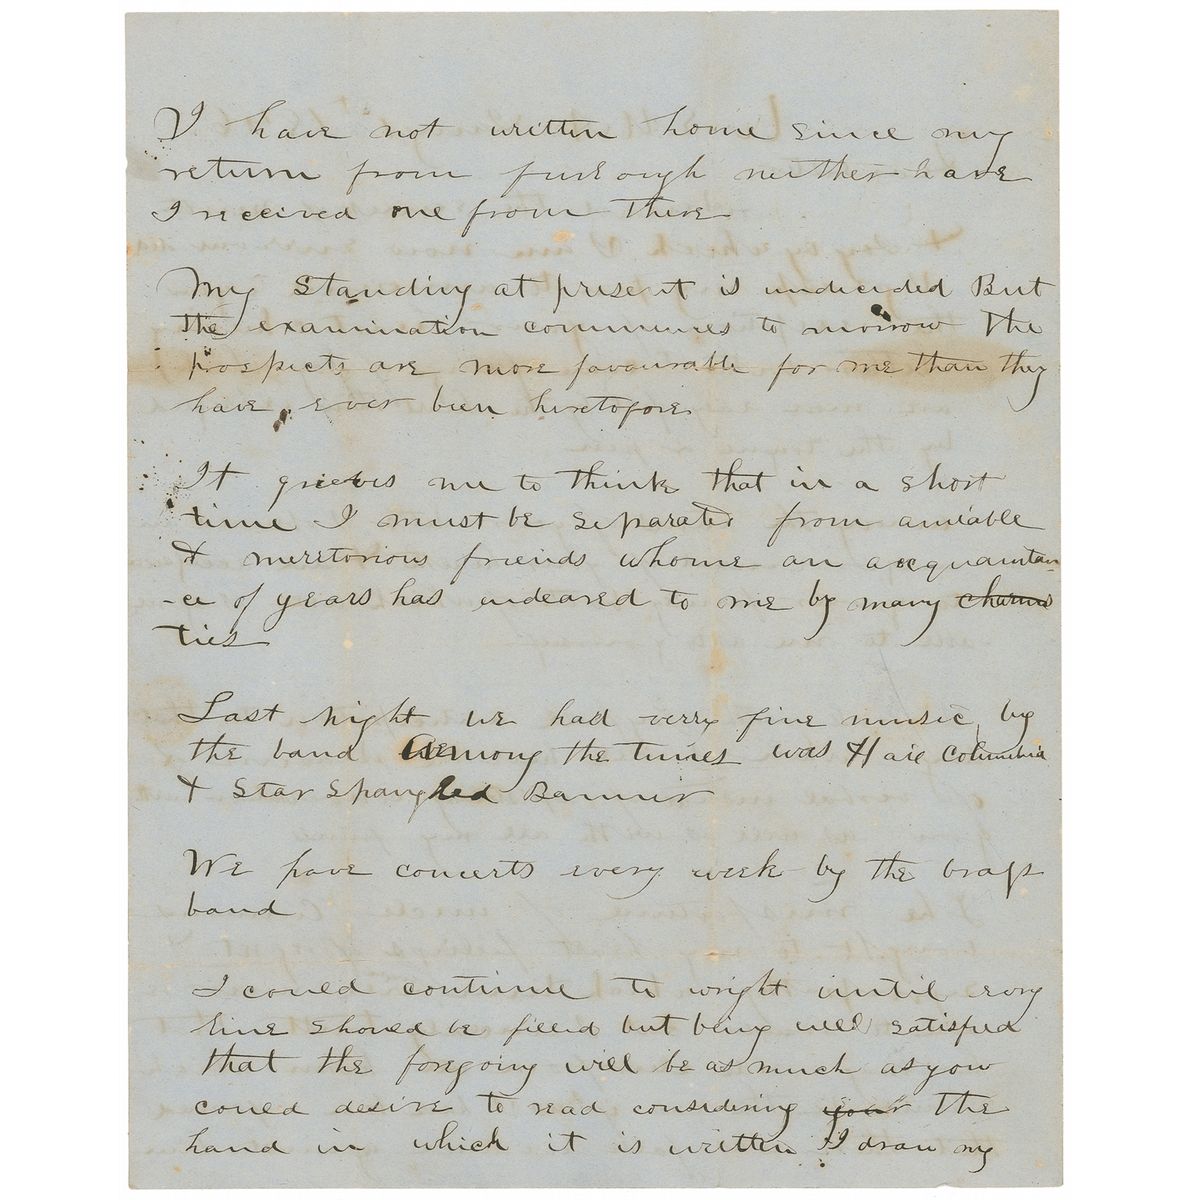 I have not written home since my
return from furlough neither have
I received one from there
My standing at present is undecided But
the examination commences to morrow the
prospects are more favourable for me than they
have ever been heretofore
It grieves me to think that in a short
time I must be separated from amiable
& meretorious friends whome an acquaintan-
-ce of years has endeared to me by many charms
ties
Last night we had verry fine music by
the band Among the tunes was Hail Columbia
& Star Spangled Banner
We have concerts every week by the brass
band
I could continue to wright until every
line should be filled but being well satisfied
that the foregoing will be as much as you
could desire to read considering your the
hand in which it is written I draw my